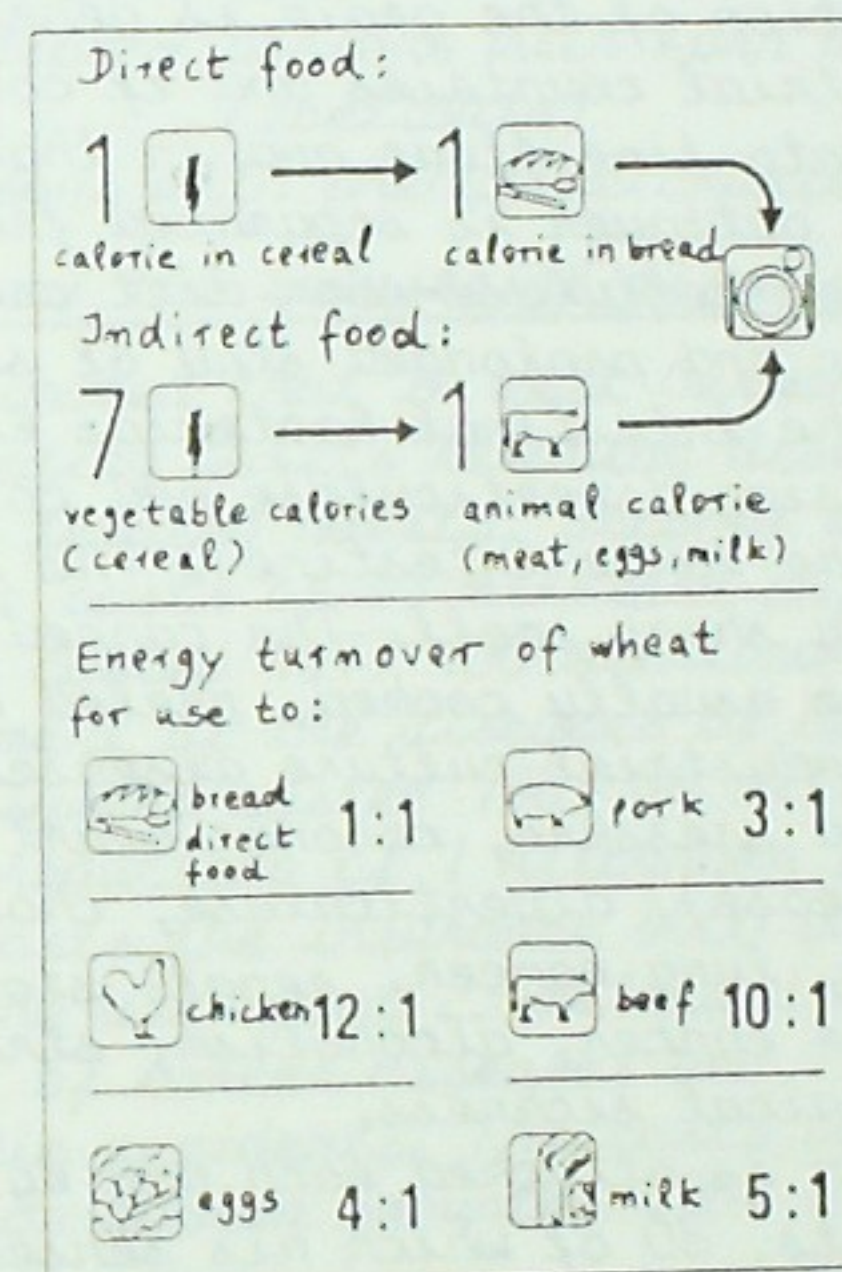 Direct food:
1 1
calorie in cereal calorie in bread
Indirect food:
7 1
vegetable calories animal calorie
(cereal) (meat, eggs, milk)
Energy turnover of wheat
for use to:
bread
direct 1:1
food
pork 3:1
chicken 12:1
beef 10:1
eggs 4:1
milk 5:1